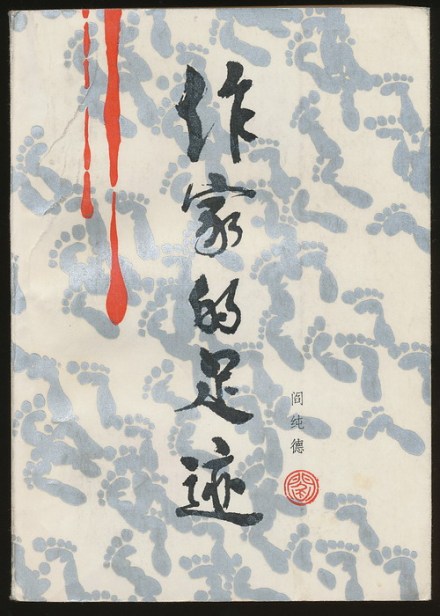 作家的足迹
阎纯德